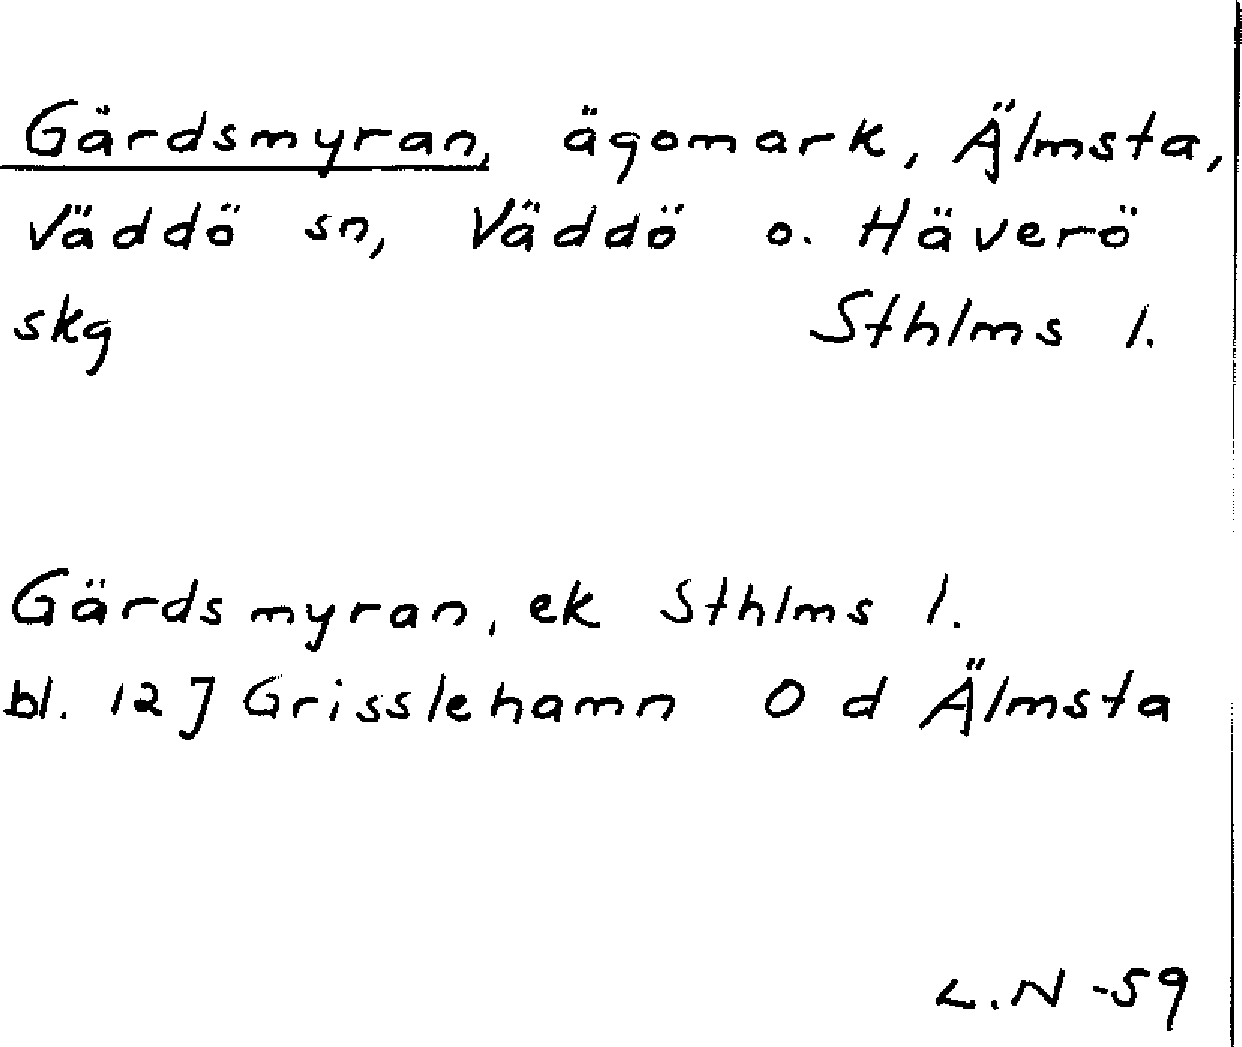 Gärdsmyran, ägomark, Älmsta,
Väddö sn, Väddö o. Häverö
skg Sthlms l.
Gärdsmyran, ek Sthlms l.
bl. 12J Grisslehamn O d Älmsta
L.N -59